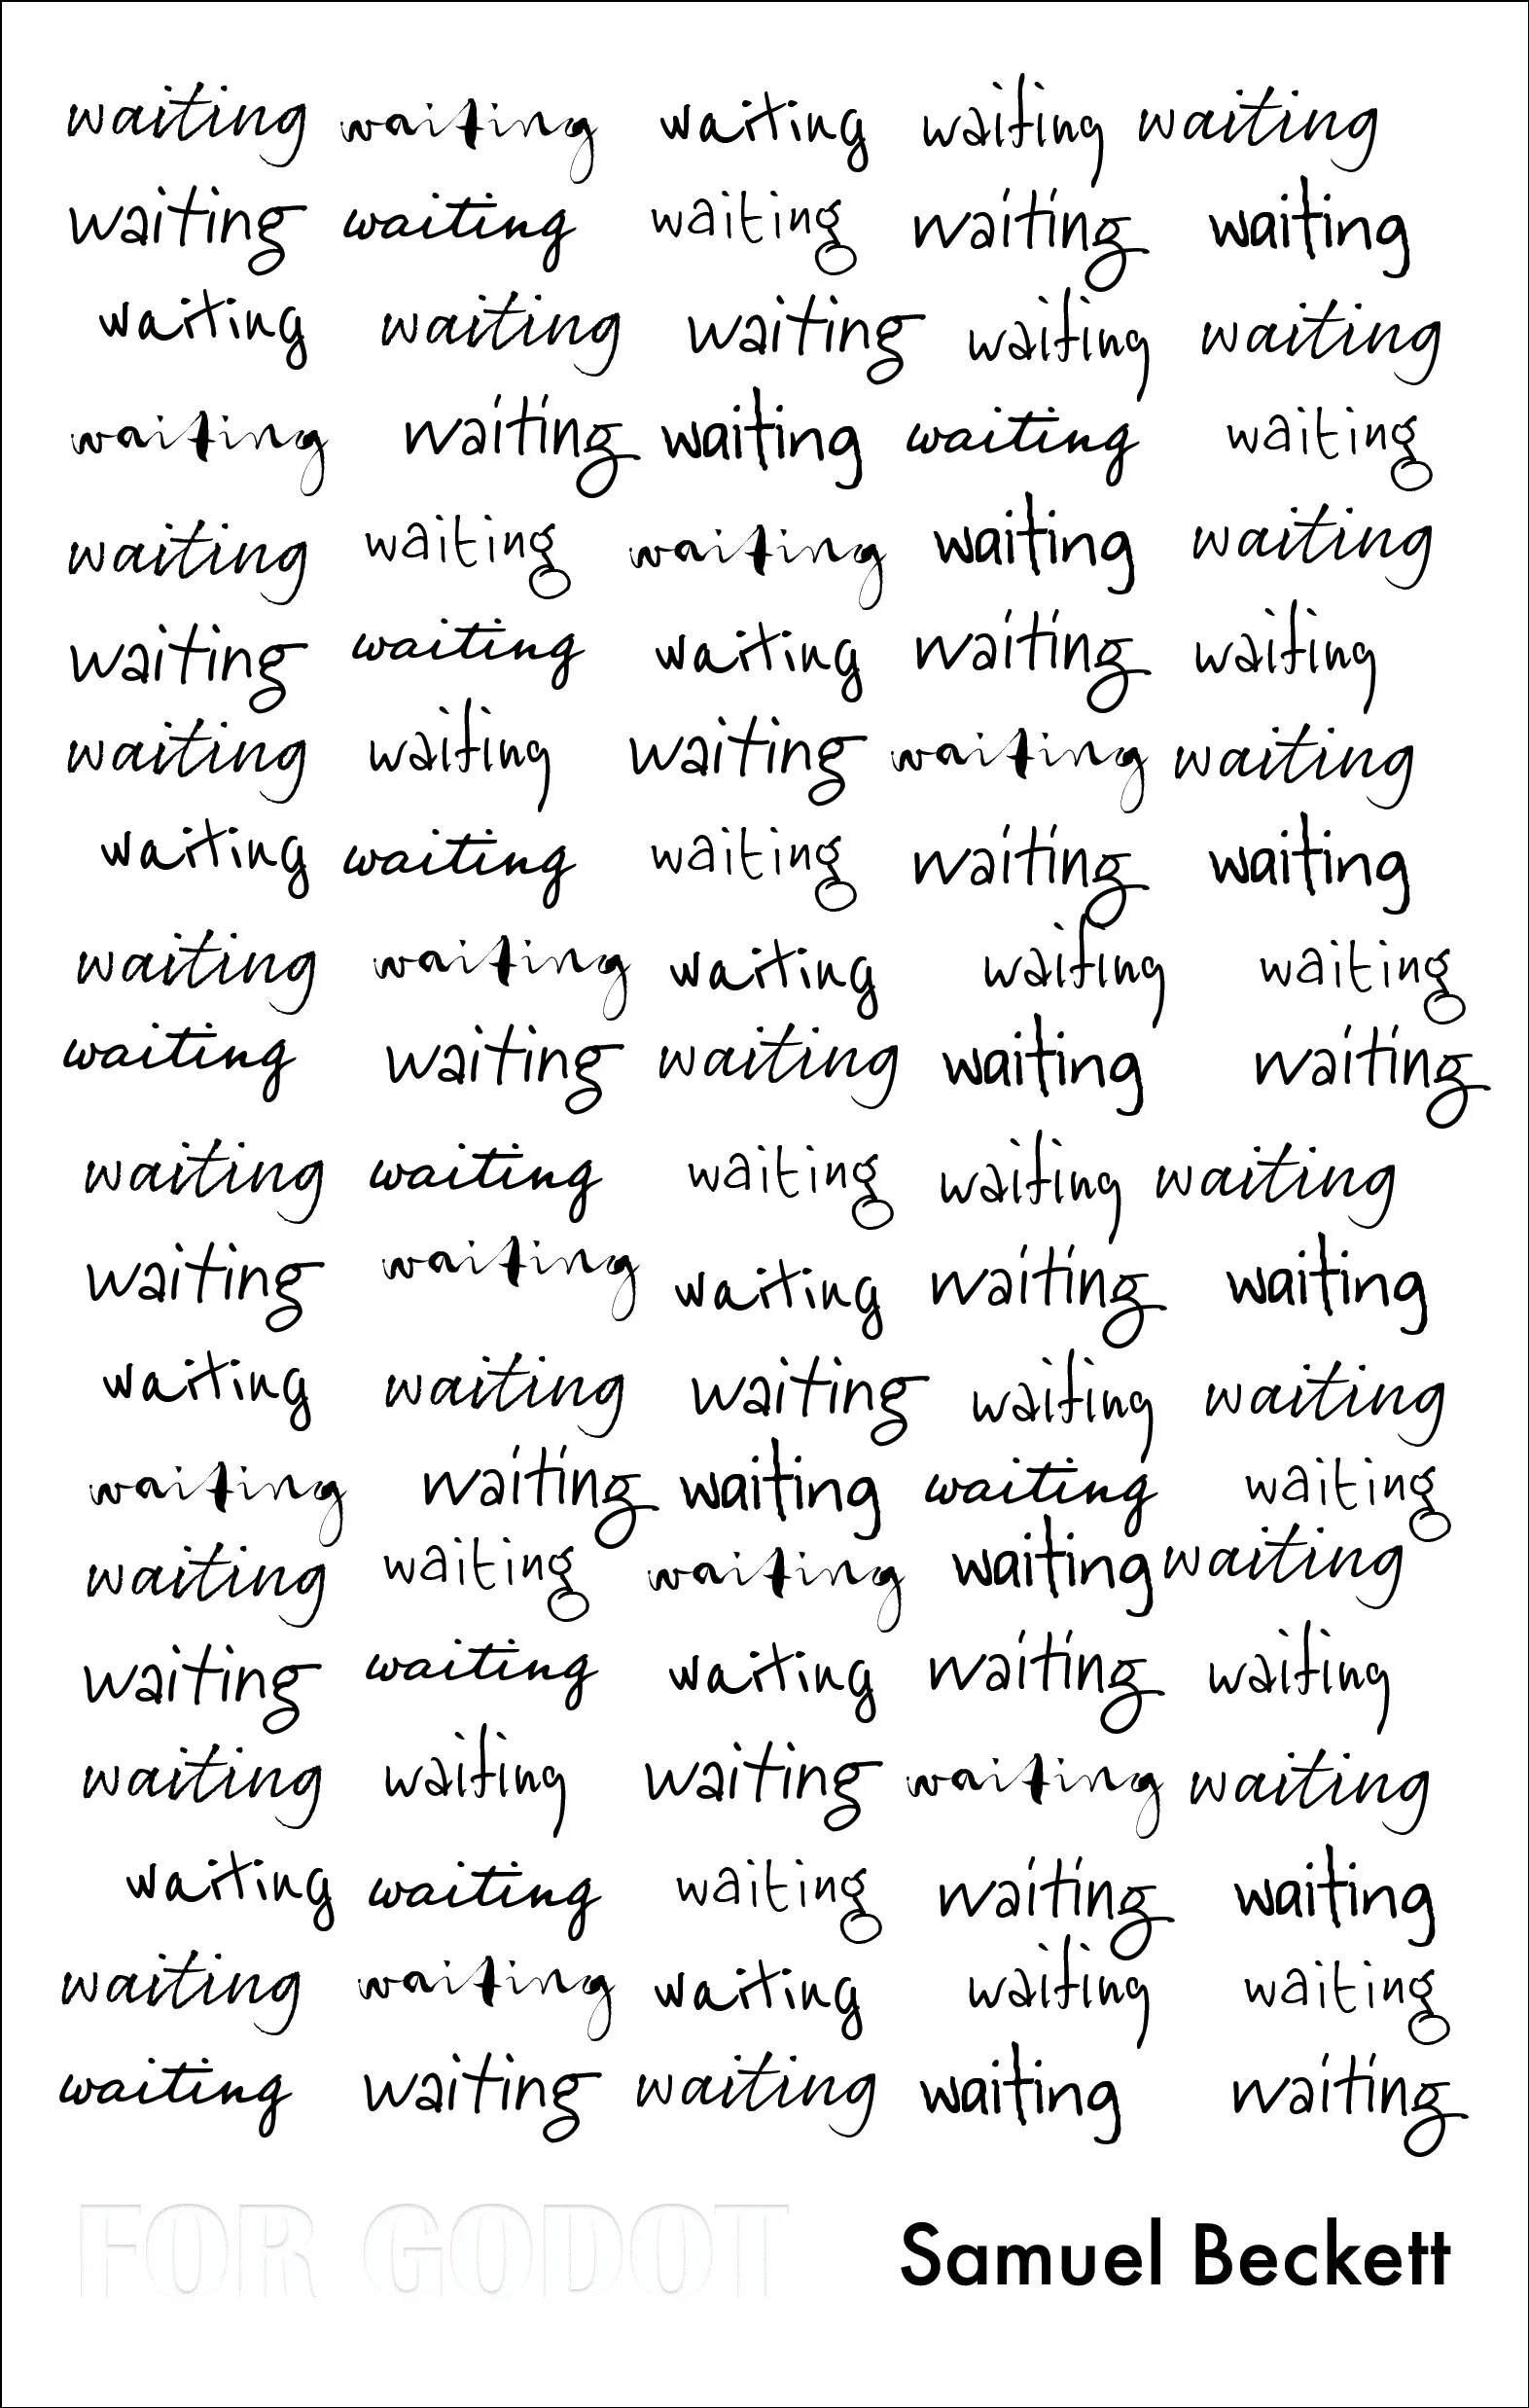 waiting waiting waiting waiting waiting
waiting waiting waiting waiting waiting
waiting waiting waiting waiting waiting
waiting waiting waiting waiting waiting
waiting waiting waiting waiting waiting
waiting waiting waiting waiting waiting
waiting waiting waiting waiting waiting
waiting waiting waiting waiting waiting
waiting waiting waiting waiting waiting
waiting waiting waiting waiting waiting
waiting waiting waiting waiting waiting
waiting waiting waiting waiting waiting
waiting waiting waiting waiting waiting
waiting waiting waiting waiting waiting
waiting waiting waiting waiting waiting
waiting waiting waiting waiting waiting
waiting waiting waiting waiting waiting
waiting waiting waiting waiting waiting
waiting waiting waiting waiting waiting
waiting waiting waiting waiting waiting
FOR GODOT Samuel Beckett